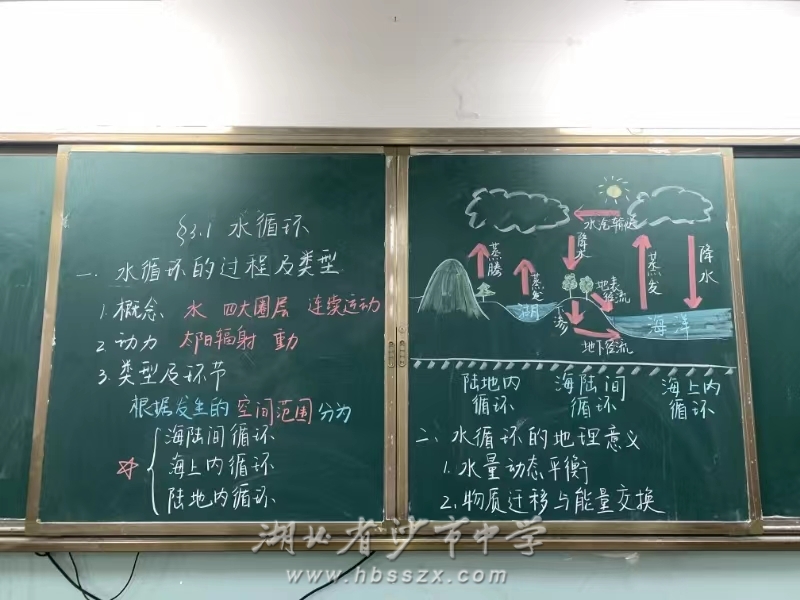 §3.1 水循环
一、水循环的过程及类型
1. 概念、水 四大圈层 连续运动
2. 动力 太阳辐射
3. 类型及环节
根据发生的空间范围分为
海陆间循环
海上内循环
陆地内循环
水汽输送
蒸腾
蒸发
降水
地表径流
蒸发
降水
湖
下渗
海洋
地下径流
陆地内循环
海陆间循环
海上内循环
二、水循环的地理意义
1. 水量动态平衡
2. 物质迁移与能量交换
湖北省沙市中学
www.hbsszx.com